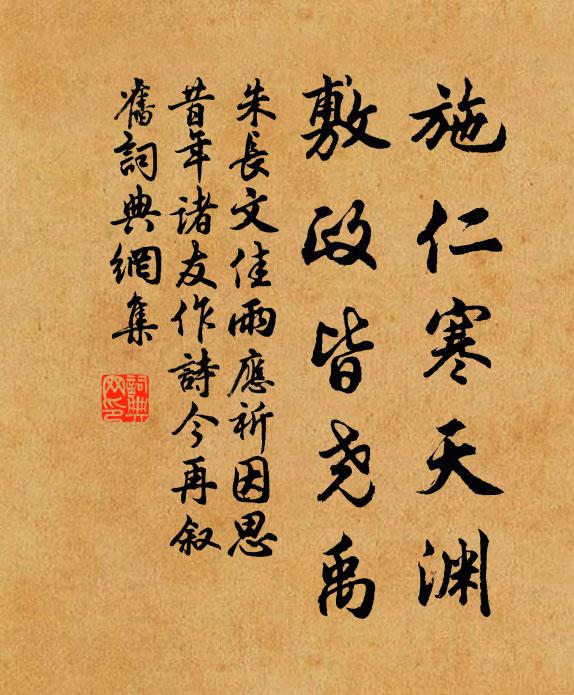 施仁寒天渊
敷政皆尧禹
朱長文佳雨應祈因思
昔年诸友作詩今再叙
舊詞典網集
詞典网印